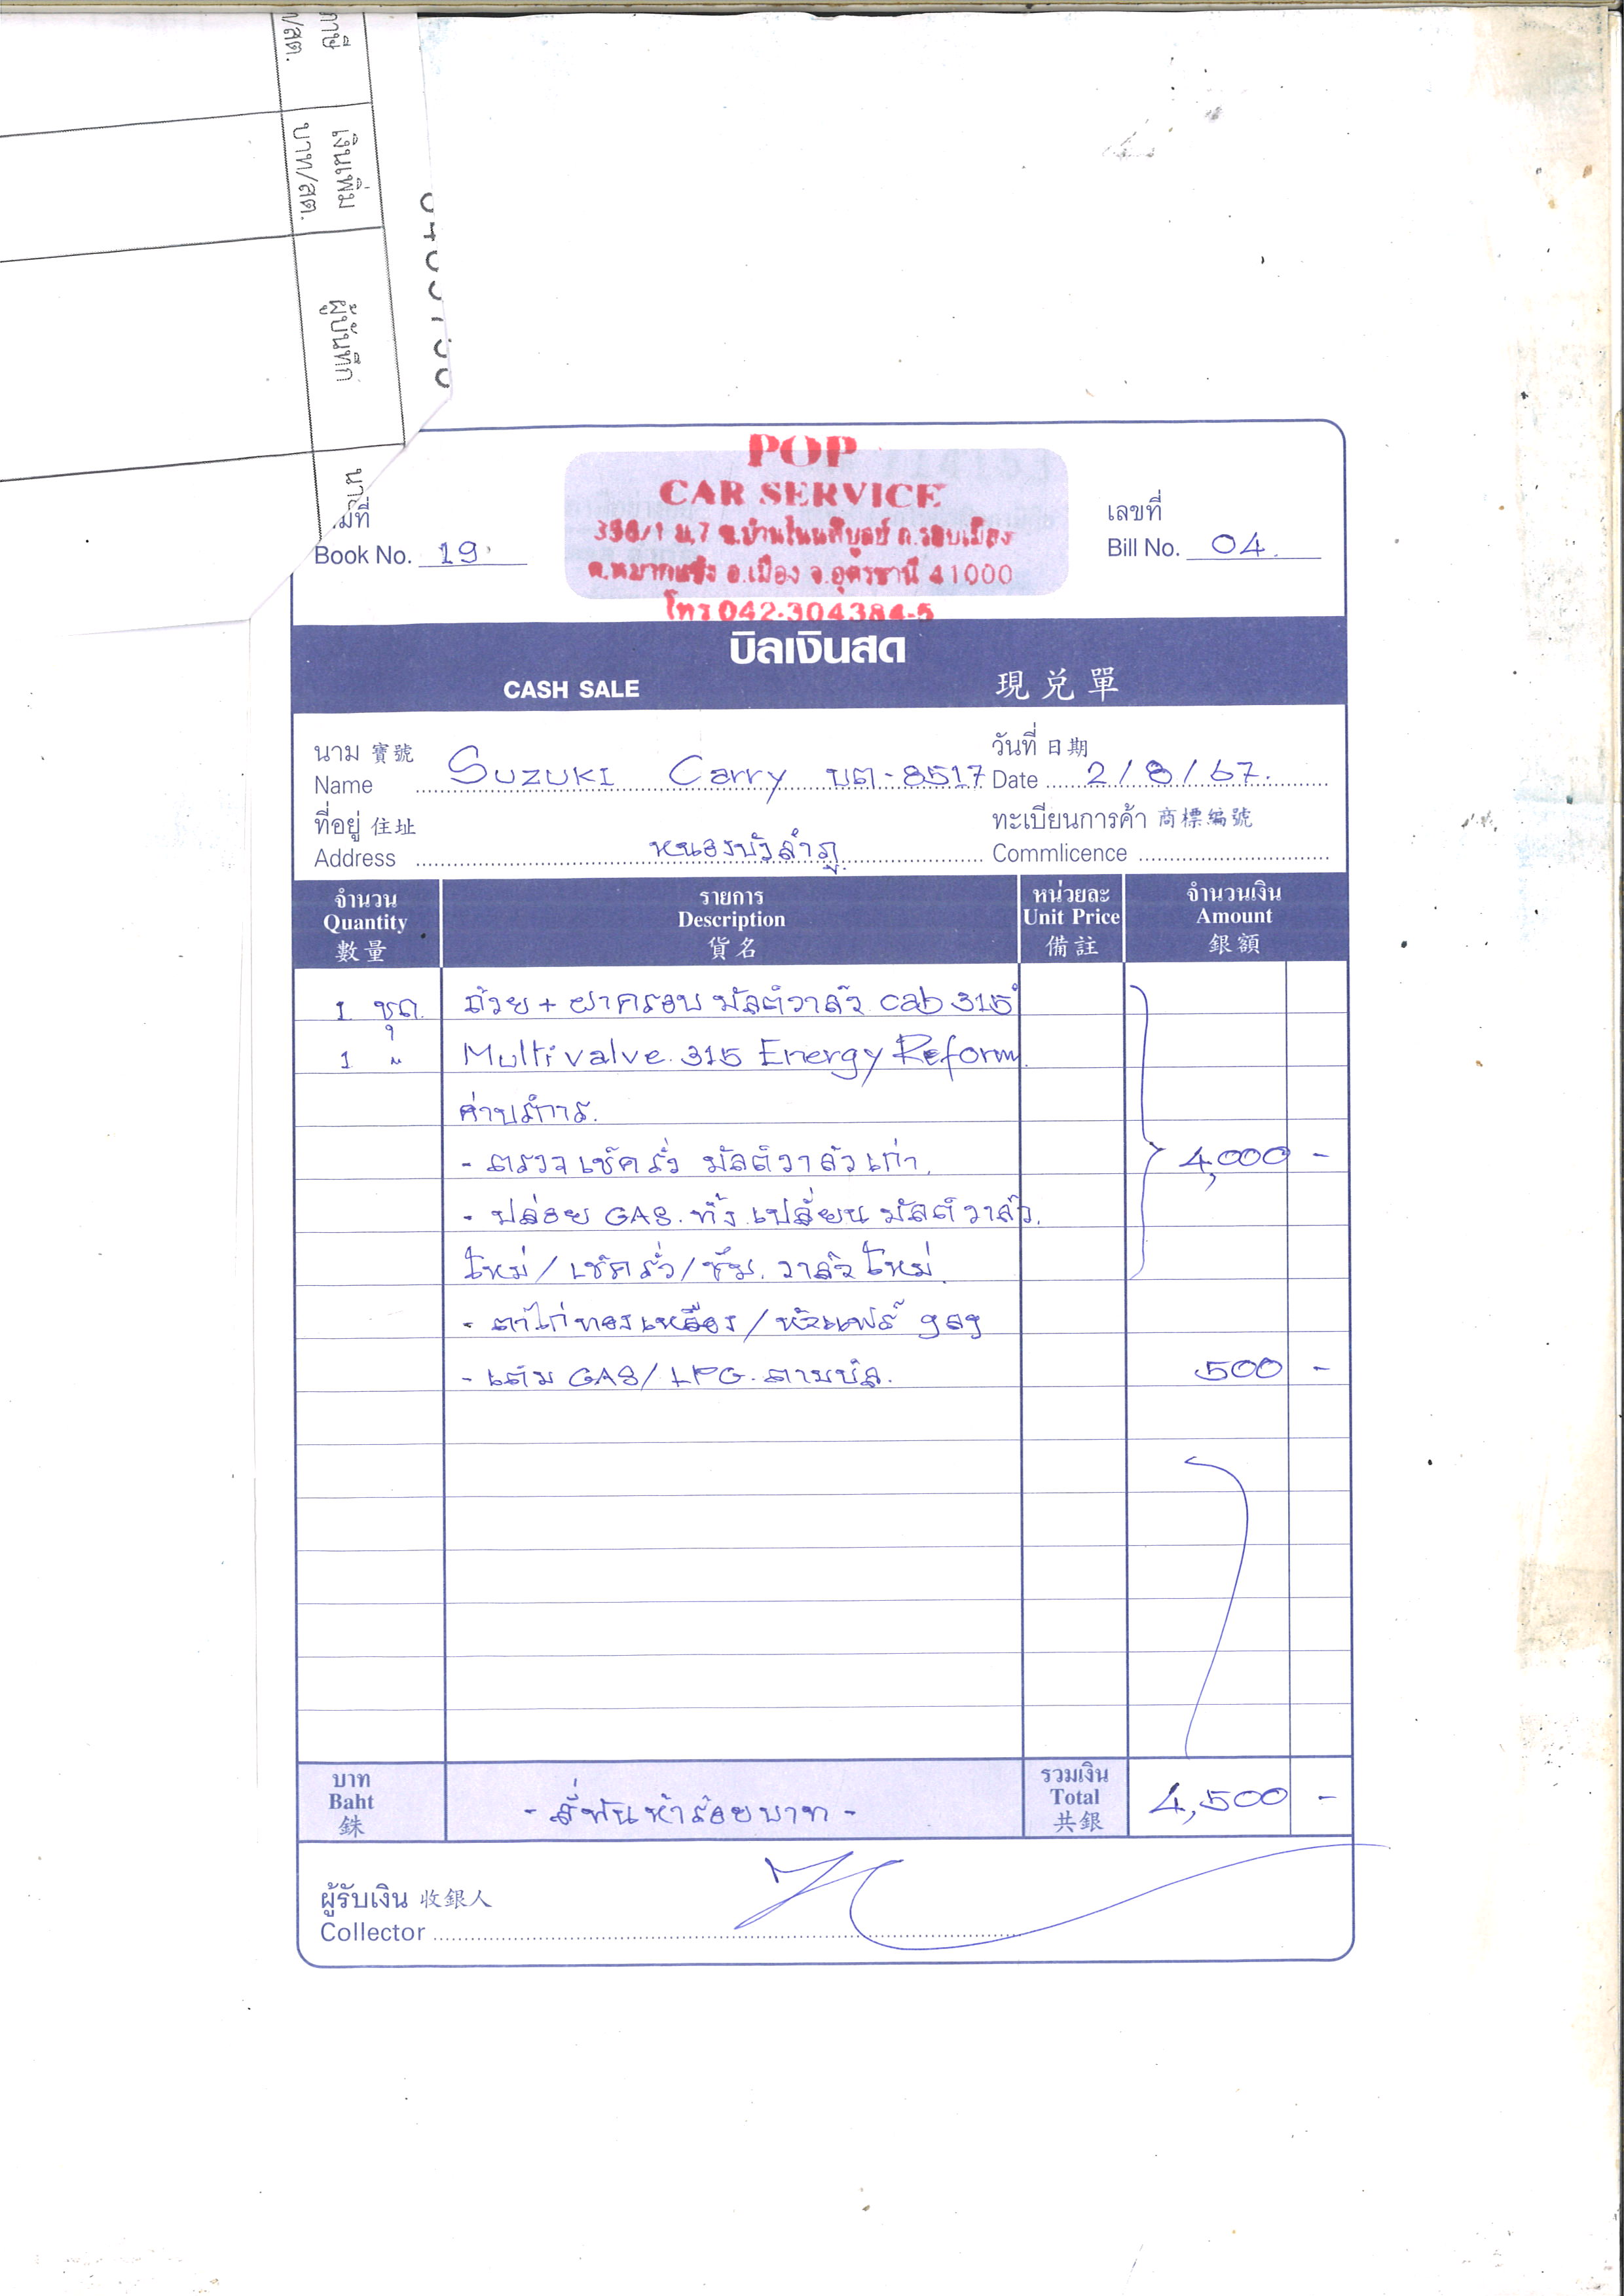 ภาษี
เงินเพิ่ม
บาท/สต.
ผู้บันทึก
POP
CAR SERVICE
356/1 ม.7 ช.บ้านโนนพิบูลย์ ถ.รอบเมือง
ต.หมากแข้ง อ.เมือง จ.อุดรธานี 41000
โทร 042-304384-5
เล่มที่
Book No. 19
เลขที่
Bill No. 04
บิลเงินสด
CASH SALE 現兑單
นาม 寶號
Name SUZUKI Carry บต-8517
วันที่ 日期
Date 2/8/67.
ที่อยู่ 住址
Address หนองบัวลำภู
ทะเบียนการค้า 商標編號
Commlicence
จำนวน Quantity 數量
รายการ Description 貨名
หน่วยละ Unit Price 備註
จำนวนเงิน Amount 銀額
1 ชุด ถ้วย + ฝาครอบ มัลติวาล์ว cab 315°
1 " Multivalve 315 Energy Reform
ค่าบริการ.
- ตรวจเช็ครั่ว มัลติวาล์วเก่า. 4,000 -
- ปล่อย GAS. ทิ้ง เปลี่ยน มัลติวาล์ว.
ใหม่ / เช็ครั่ว / ซึม. วาล์วใหม่.
- ตาไก่ทองเหลือง / หัวแฟร์ gas
- เติม GAS/ LPG. ตามบิล. 500 -
บาท Baht 銖
- สี่พันห้าร้อยบาท -
รวมเงิน Total 共銀
4,500 -
ผู้รับเงิน 收銀人
Collector